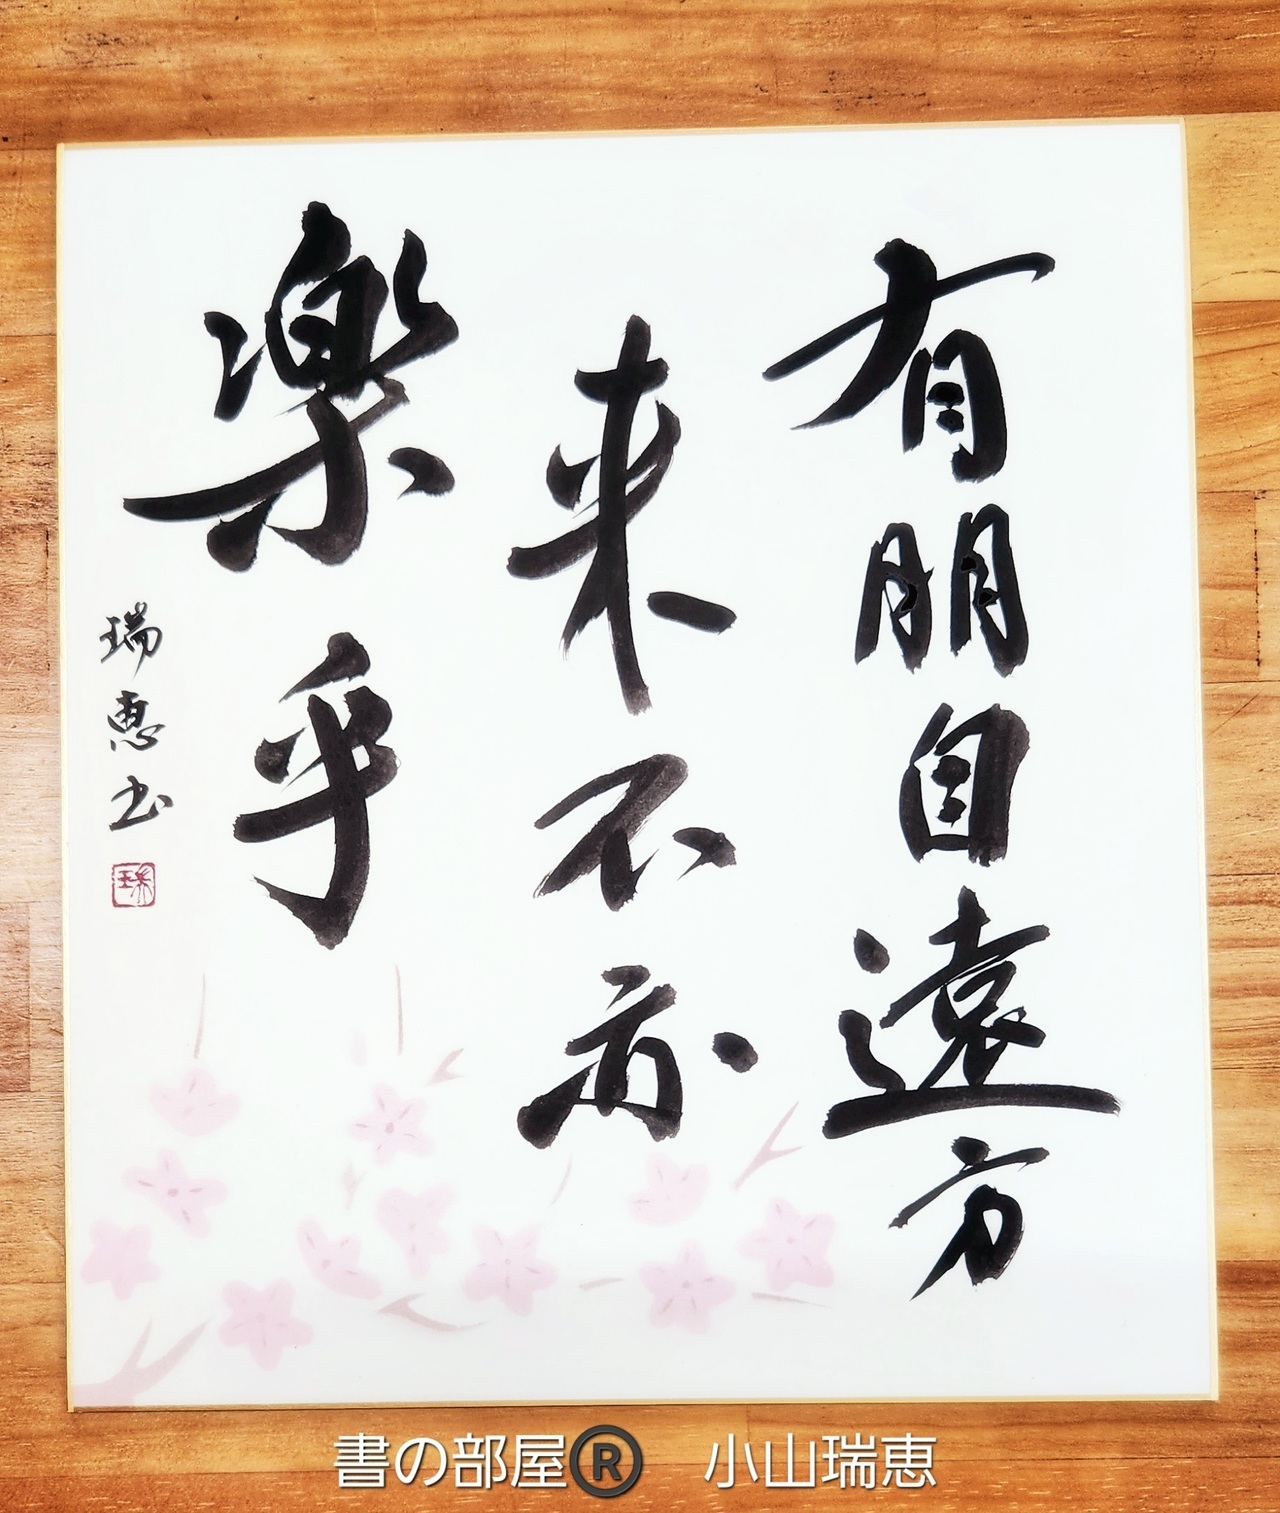 有朋自遠方
来不亦
樂乎
瑞恵书
書の部屋® 小山瑞恵